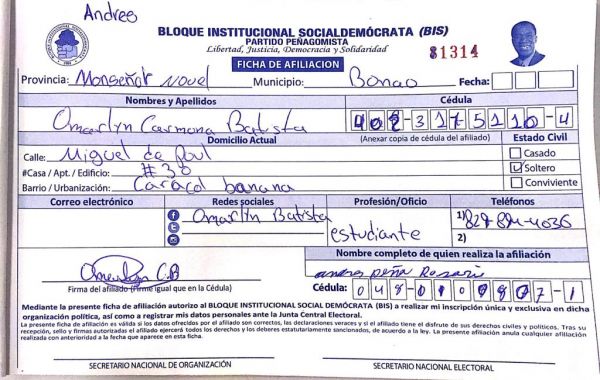 Andres
BLOQUE INSTITUCIONAL SOCIALDEMÓCRATA (BIS)
PARTIDO PEÑAGOMISTA
Libertad, Justicia, Democracia y Solidaridad
81314
FICHA DE AFILIACION
Provincia: Monseñor Novel Municipio: Bonao Fecha:
Nombres y Apellidos Cédula
Omarlyn Carmona Batista 402-3175110-4
Domicilio Actual (Anexar copia de cédula del afiliado) Estado Civil
Calle: Miguel de Paul Casado
#Casa / Apt. / Edificio: #38 Soltero
Barrio / Urbanización: Caracol banana Conviviente
Correo electrónico Redes sociales Profesión/Oficio Teléfonos
Omarlyn Batista estudiante 1) 829-894-4036
2)
Nombre completo de quien realiza la afiliación
Omarlyn C.B andres peña Rosario
Firma del afiliado (Firme igual que en la Cédula) Cédula: 048-0109807-1
Mediante la presente ficha de afiliación autorizo al BLOQUE INSTITUCIONAL SOCIAL DEMÓCRATA (BIS) a realizar mi inscripción única y exclusiva en dicha
organización política, así como a registrar mis datos personales ante la Junta Central Electoral.
La presente ficha de afiliación es válida si los datos ofrecidos por el afiliado son correctos, las declaraciones veraces y si el afiliado tiene el disfrute de sus derechos civiles y políticos. Tras su
recepción, sello y firmas autorizadas el afiliado ejercerá todos los derechos y los deberes estatutariamente sancionados, de acuerdo a la ley. La presente afiliación anula cualquier afiliación
realizada con anterioridad a la fecha que aparece en esta ficha.
SECRETARIO NACIONAL DE ORGANIZACIÓN SECRETARIO NACIONAL ELECTORAL